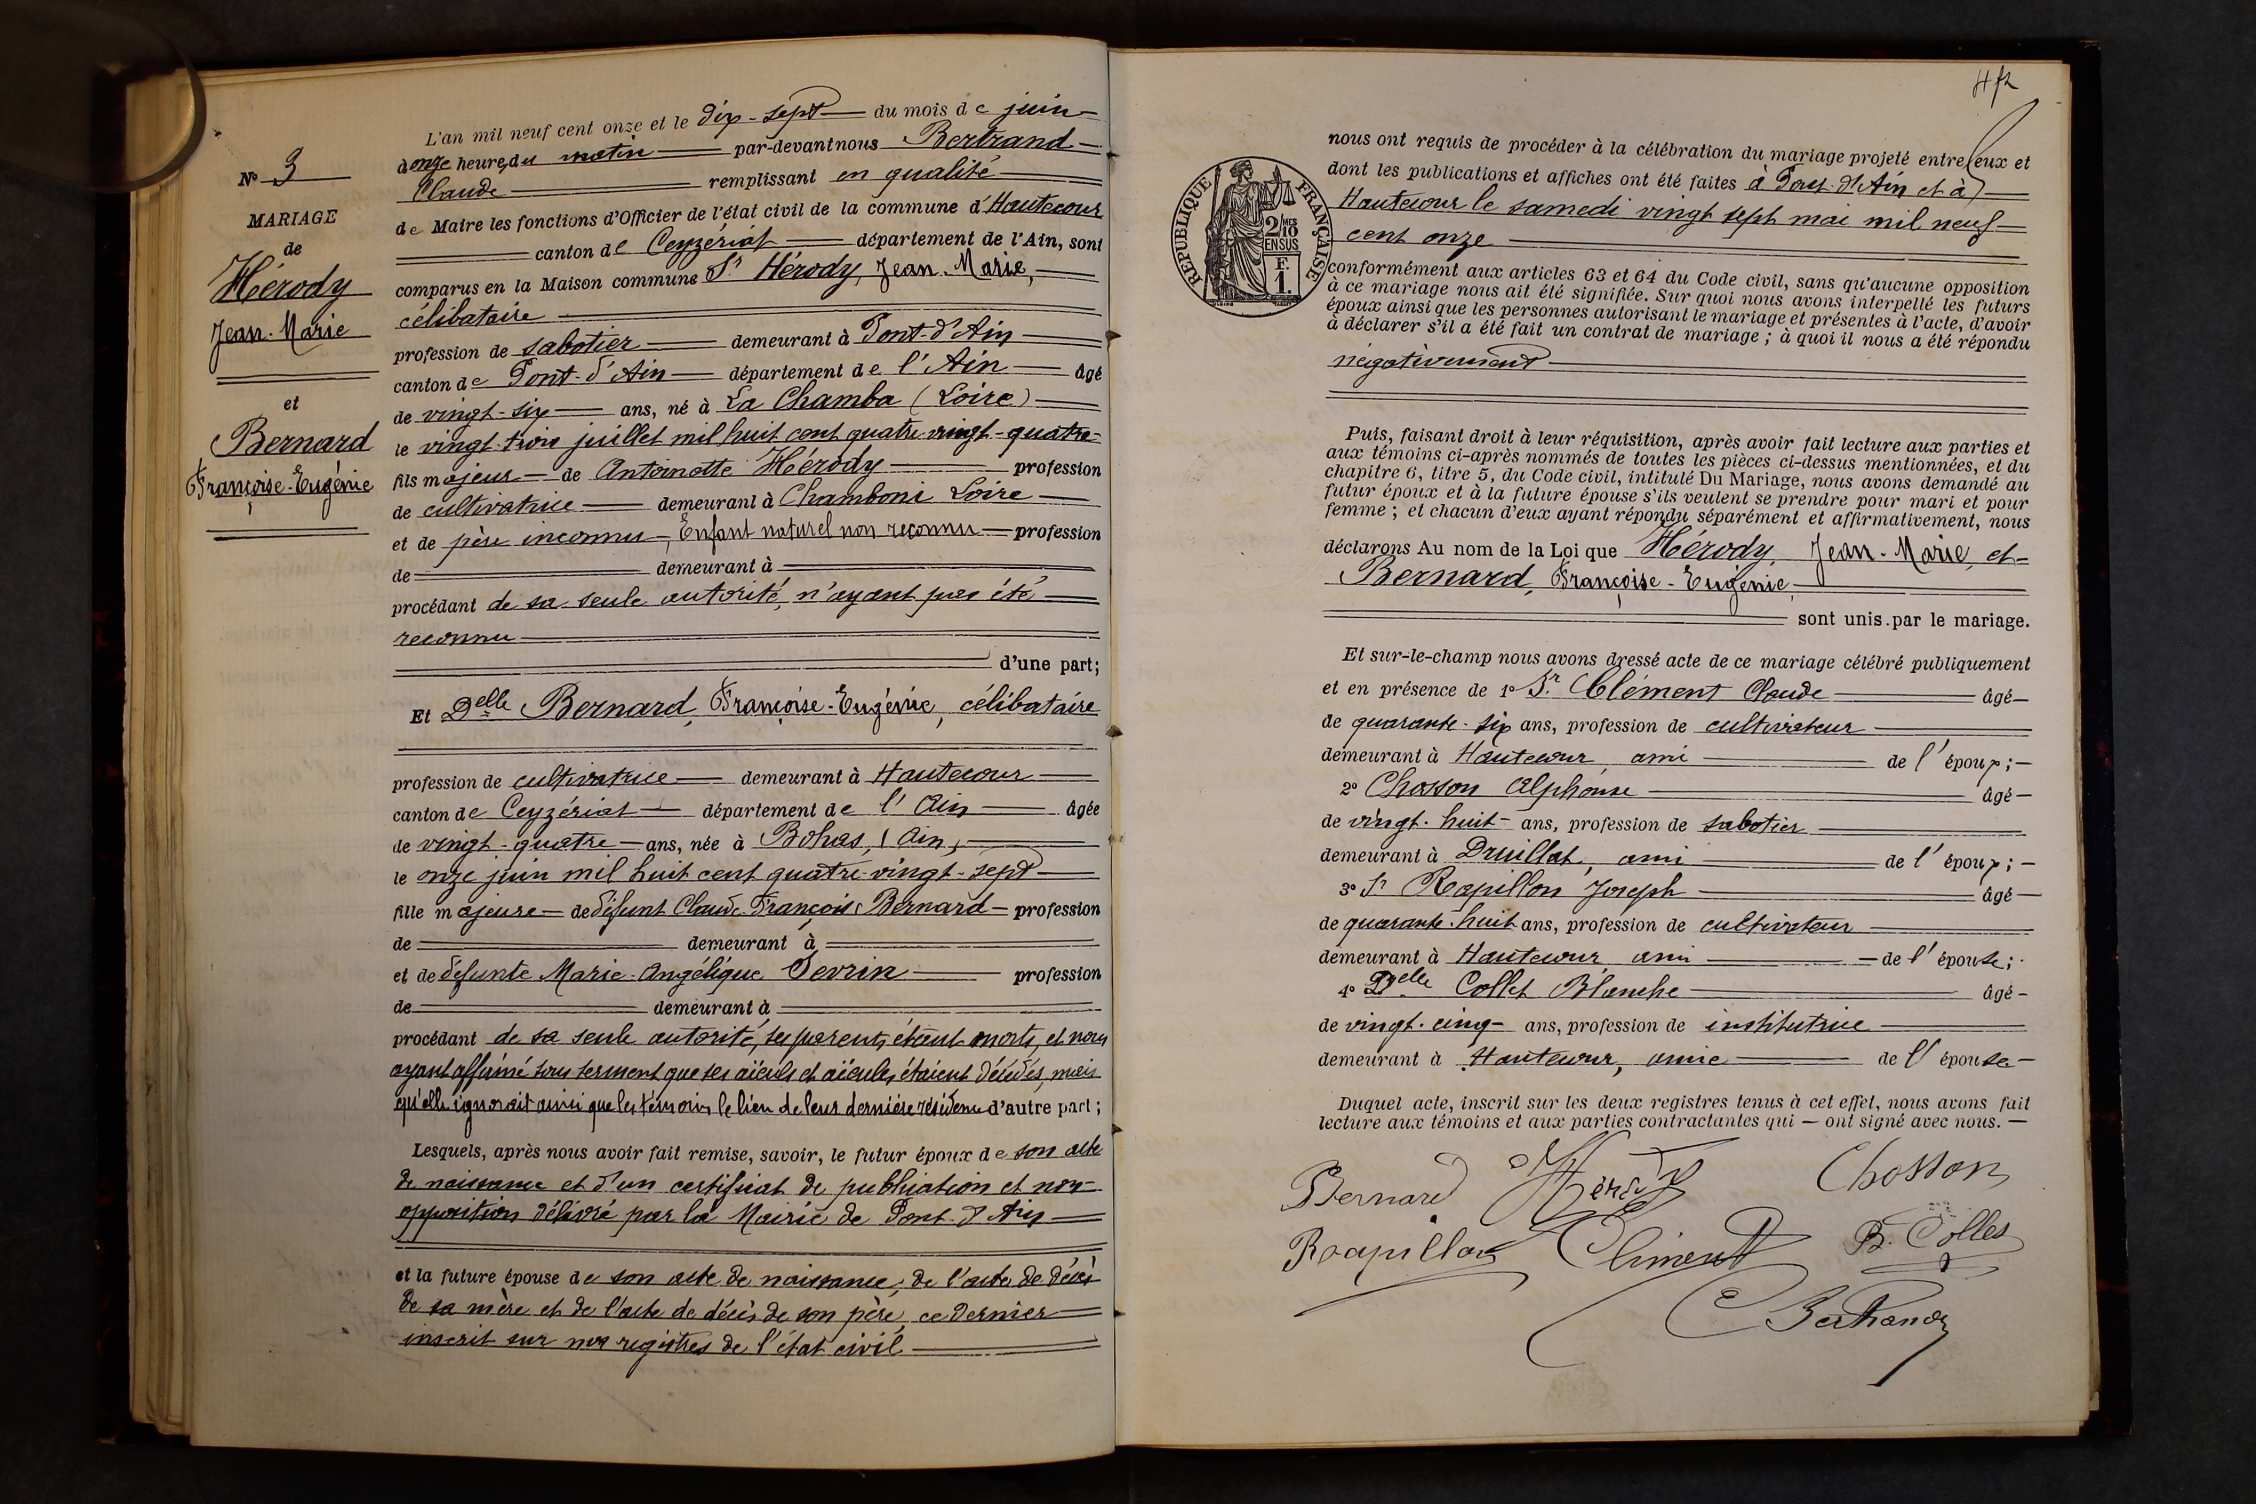 N° 3
MARIAGE
de
Hérody
Jean-Marie
et
Bernard
Françoise-Eugénie
L'an mil neuf cent onze et le dix-sept du mois de juin
à onze heures du matin par-devant nous Bertrand
Claude remplissant en qualité
de Maire les fonctions d'Officier de l'état civil de la commune d'Hautecour
canton de Ceyzériat département de l'Ain, sont
comparus en la Maison commune Sr Hérody, Jean-Marie,
célibataire
profession de sabotier demeurant à Pont-d'Ain
canton de Pont-d'Ain département de l'Ain âgé
de vingt-six ans, né à La Chamba (Loire)
le vingt-trois juillet mil huit cent quatre-vingt-quatre
fils majeur de Antoinette Hérody profession
de cultivatrice demeurant à Chamboni Loire
et de père inconnu, Enfant naturel non reconnu profession
de demeurant à
procédant de sa seule autorité, n'ayant pas été
reconnu
d'une part;
Et Delle Bernard, Françoise-Eugénie, célibataire
profession de cultivatrice demeurant à Hautecour
canton de Ceyzériat département de l'Ain âgée
de vingt-quatre ans, née à Bohas, (Ain)
le onze juin mil huit cent quatre-vingt-sept
fille majeure de défunt Claude-François Bernard profession
de demeurant à
et de défunte Marie-Angélique Sevrin profession
de demeurant à
procédant de sa seule autorité, ses parents étant morts, et nous
ayant affirmé sous serment que ses aïeuls et aïeules étaient décédés, mais
qu'elle ignorait ainsi que les témoins le lieu de leur dernière résidence d'autre part;
Lesquels, après nous avoir fait remise, savoir, le futur époux de son acte
de naissance et d'un certificat de publication et non-
opposition délivré par la Mairie de Pont-d'Ain
et la future épouse de son acte de naissance, de l'acte de décès
de sa mère et de l'acte de décès de son père, ce dernier
inscrit sur nos registres de l'état civil
nous ont requis de procéder à la célébration du mariage projeté entre eux et
dont les publications et affiches ont été faites à Pont-d'Ain et à
Hautecour le samedi vingt sept mai mil neuf
cent onze
RÉPUBLIQUE FRANÇAISE
2/10 MES
EN SUS
F.
1.
conformément aux articles 63 et 64 du Code civil, sans qu'aucune opposition
à ce mariage nous ait été signifiée. Sur quoi nous avons interpellé les futurs
époux ainsi que les personnes autorisant le mariage et présentes à l'acte, d'avoir
à déclarer s'il a été fait un contrat de mariage; à quoi il nous a été répondu
négativement
Puis, faisant droit à leur réquisition, après avoir fait lecture aux parties et
aux témoins ci-après nommés de toutes les pièces ci-dessus mentionnées, et du
chapitre 6, titre 5, du Code civil, intitulé Du Mariage, nous avons demandé au
futur époux et à la future épouse s'ils veulent se prendre pour mari et pour
femme; et chacun d'eux ayant répondu séparément et affirmativement, nous
déclarons Au nom de la Loi que Hérody, Jean-Marie, et
Bernard, Françoise-Eugénie,
sont unis par le mariage.
Et sur-le-champ nous avons dressé acte de ce mariage célébré publiquement
et en présence de 1° Sr. Clément Claude âgé
de quarante-six ans, profession de cultivateur
demeurant à Hautecour, ami de l'époux;
2° Chosson Alphonse âgé
de vingt-huit ans, profession de sabotier
demeurant à Druillat, ami de l'époux;
3° Sr Rapillon Joseph âgé
de quarante-huit ans, profession de cultivateur
demeurant à Hautecour, ami de l'épouse;
4° Delle Collet Blanche âgé
de vingt-cinq ans, profession de institutrice
demeurant à Hautecour, amie de l'épouse
Duquel acte, inscrit sur les deux registres tenus à cet effet, nous avons fait
lecture aux témoins et aux parties contractantes qui ont signé avec nous.
Bernard Hérody Chosson
Rapillon Clément B. Collet
Bertrand